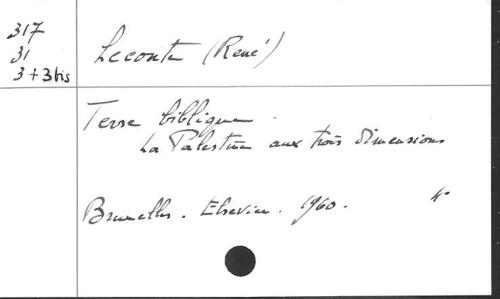 317
31
3 + 3 bis
Leconte (René)
Terre biblique.
La Palestine aux trois dimensions
Bruxelles. Elsevier. 1960. 4°